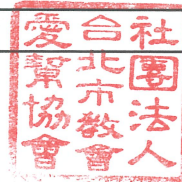 社團法人
台北市教會
愛幫協會